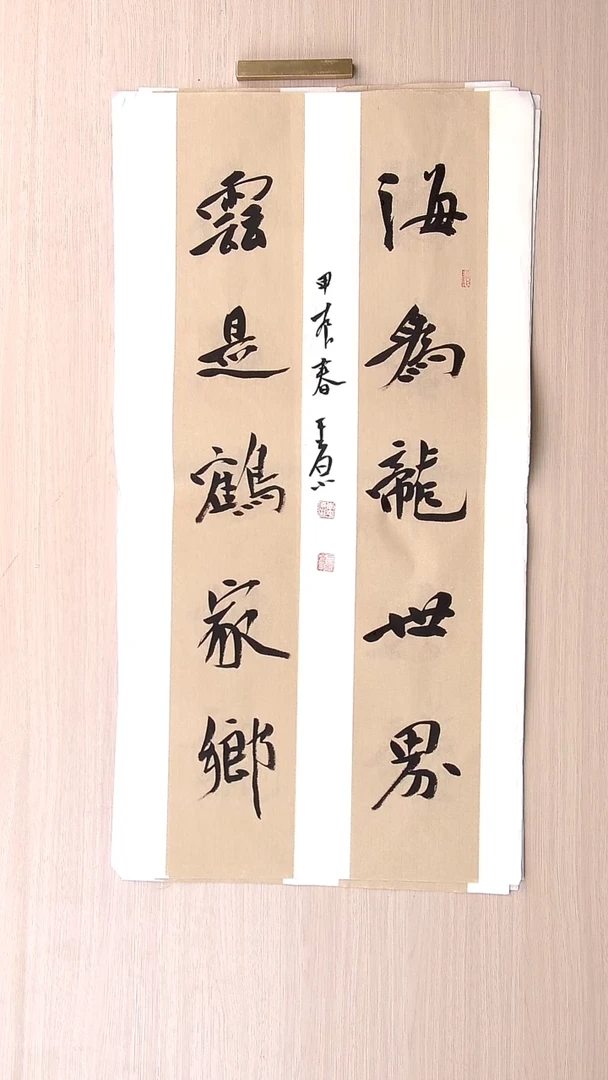 海為龍世界
雲是鶴家鄉
甲辰春